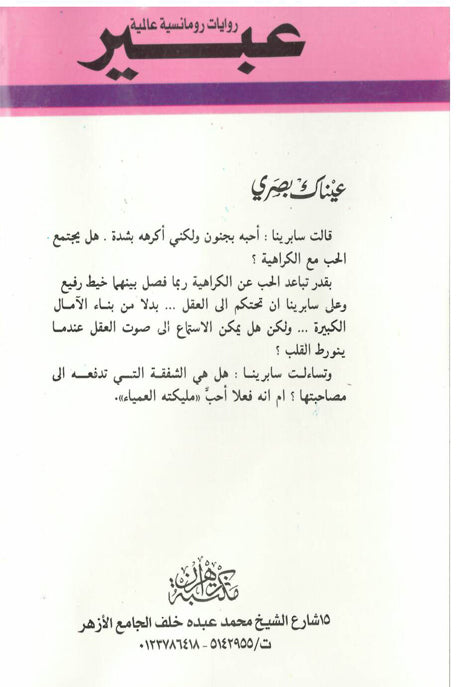 روايات رومانسية عالمية
عبير
عيناك بصري
قالت سابرينا : أحبه بجنون ولكني أكرهه بشدة . هل يجتمع
الحب مع الكراهية ؟
بقدر تباعد الحب عن الكراهية ربما فصل بينهما خيط رفيع
وعلى سابرينا ان تحتكم الى العقل ... بدلا من بناء الآمال
الكبيرة ... ولكن هل يمكن الاستماع الى صوت العقل عندما
يتورط القلب ؟
وتساءلت سابرينا : هل هي الشفقة التي تدفعه الى
مصاحبتها ؟ ام انه فعلا أحبَّ «مليكته العمياء».
مكتبة زهران
١٥ شارع الشيخ محمد عبده خلف الجامع الأزهر
ت/٥١٤٢٩٥٥ - ٠١٢٣٧٨٦٤١٨